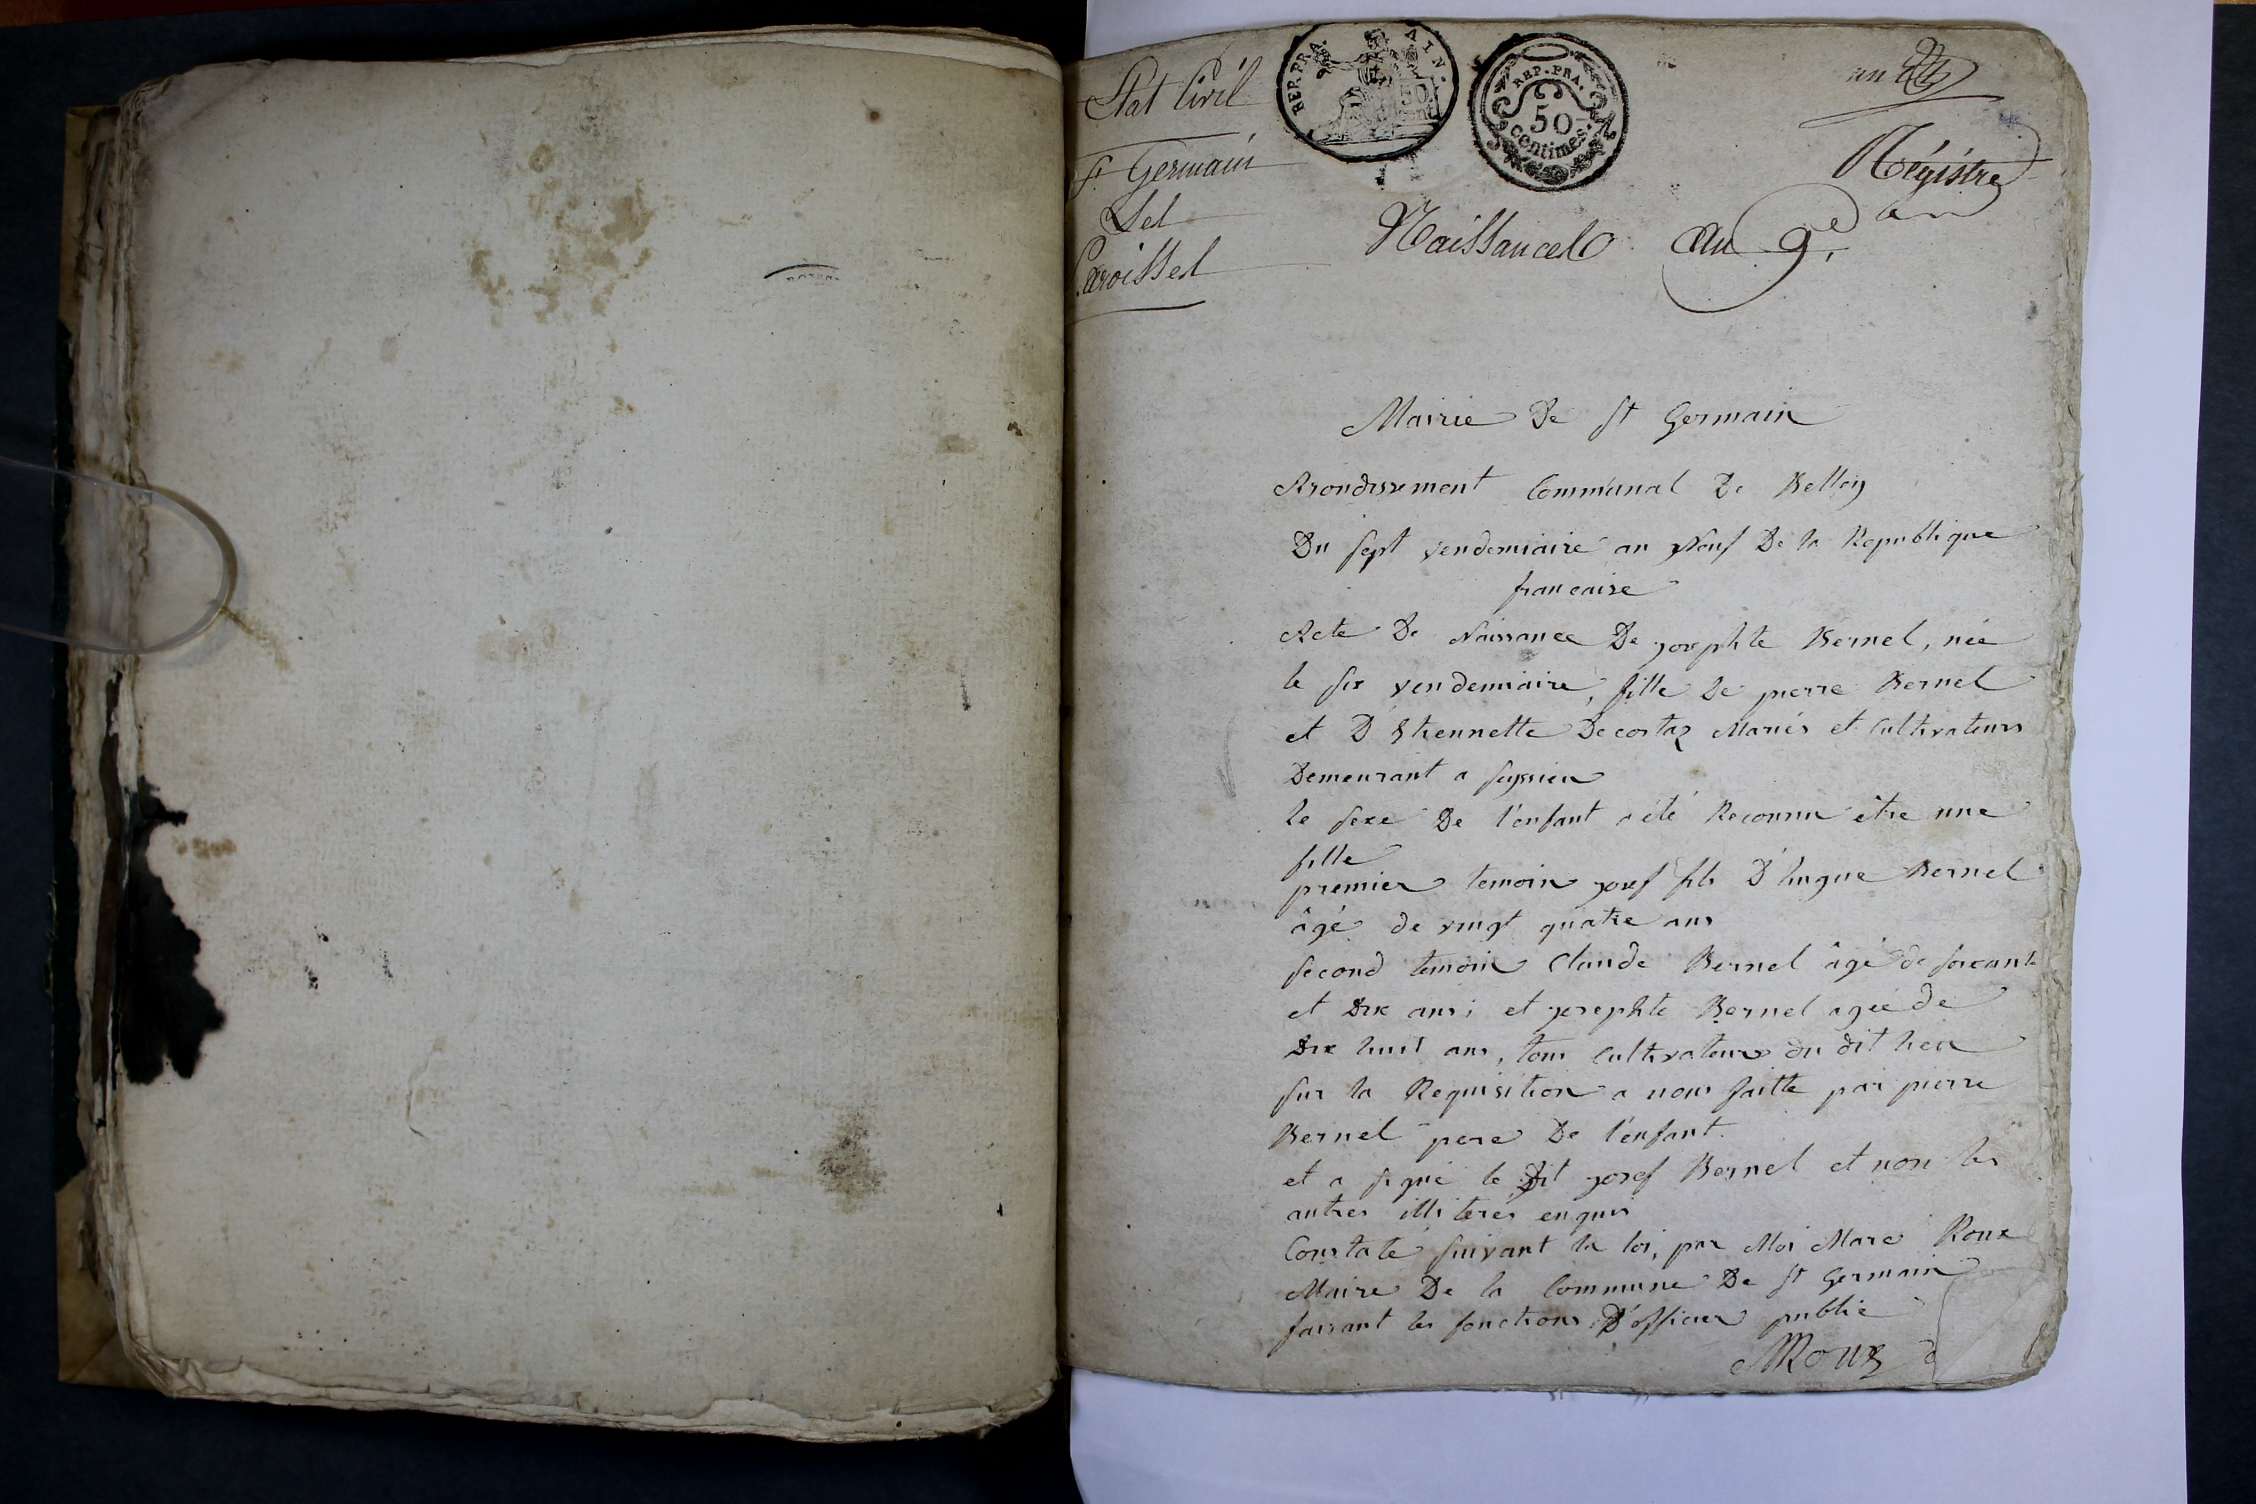 Etat Civil
St Germain
Les
Paroisses
REP. FRA. AIN.
50
REP. FRA.
50
centimes.
an
Régistre
Naissances an 9e.
Mairie De St Germain
Arondissement Communal De Belley
Du sept vendemiaire an Neuf De la Republique
francaise
Acte De Naissance De josephte Bernel, née
le six vendemiaire, fille de pierre Bernel
et D'Etiennette Decostaz Mariés et Cultivateurs
Demeurant a
le sexe De l'enfant a été Reconnu être une
fille
premier temoin josef fils D'hugue Bernel
âgé de vingt quatre ans
second temoin Claude Bernel âgé de soixante
et Dix ans; et josephte Bernel agée de
Dix huit ans, tous Cultivateurs du dit lieu
sur la Requisition a nous faitte par pierre
Bernel pere De l'enfant.
et a signé le Dit josef Bernel et non les
autres illiterés enquis
Constaté suivant la loi, par Moi Marc Roux
Maire De la Commune De St Germain
faisant les fonctions D'officier public
MRoux